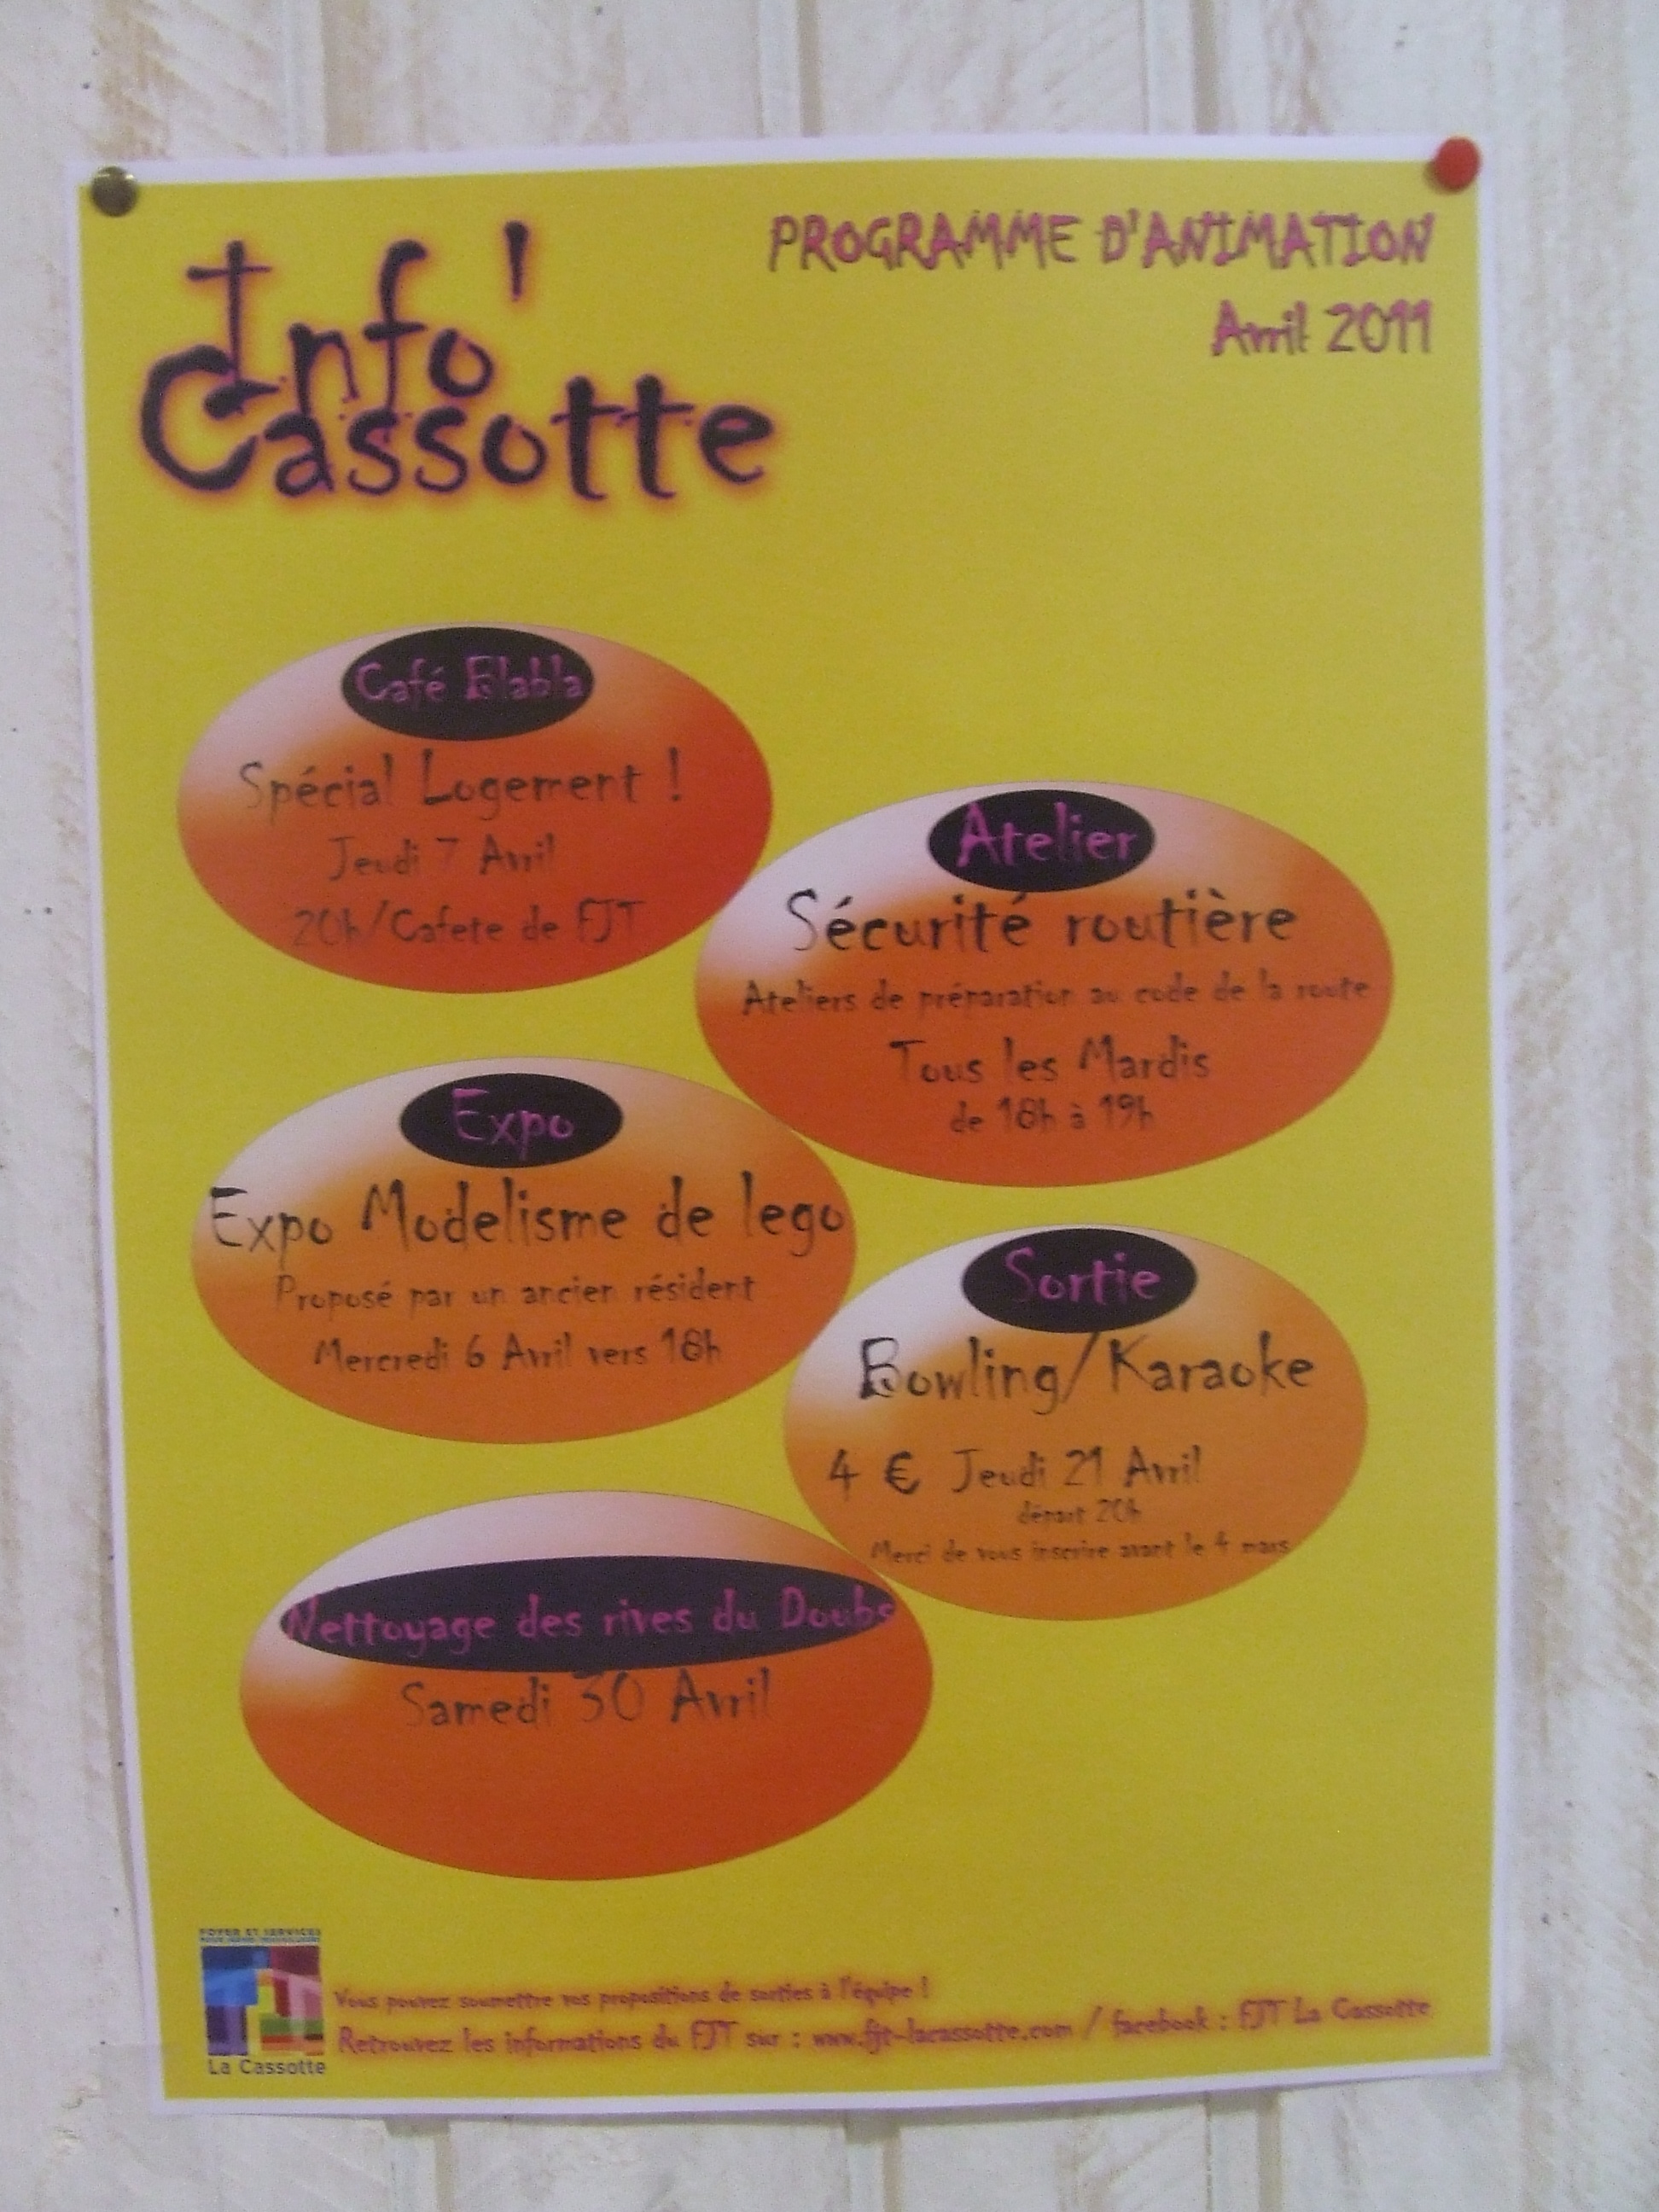 Info'
Cassotte
PROGRAMME D'ANIMATION
Avril 2011
Café Blabla
Spécial Logement !
Jeudi 7 Avril
20h/Cafete de FJT
Atelier
Sécurité routière
Ateliers de préparation au code de la route
Tous les Mardis
de 18h à 19h
Expo
Expo Modelisme de lego
Proposé par un ancien résident
Mercredi 6 Avril vers 18h
Sortie
Bowling/Karaoke
4 € Jeudi 21 Avril
départ 20h
Merci de vous inscrire avant le 4 mars
Nettoyage des rives du Doubs
Samedi 30 Avril
FOYER ET SERVICES
La Cassotte
Vous pouvez soumettre vos propositions de sorties à l'équipe !
Retrouvez les informations du FJT sur : www.fjt-lacassotte.com / facebook : FJT La Cassotte